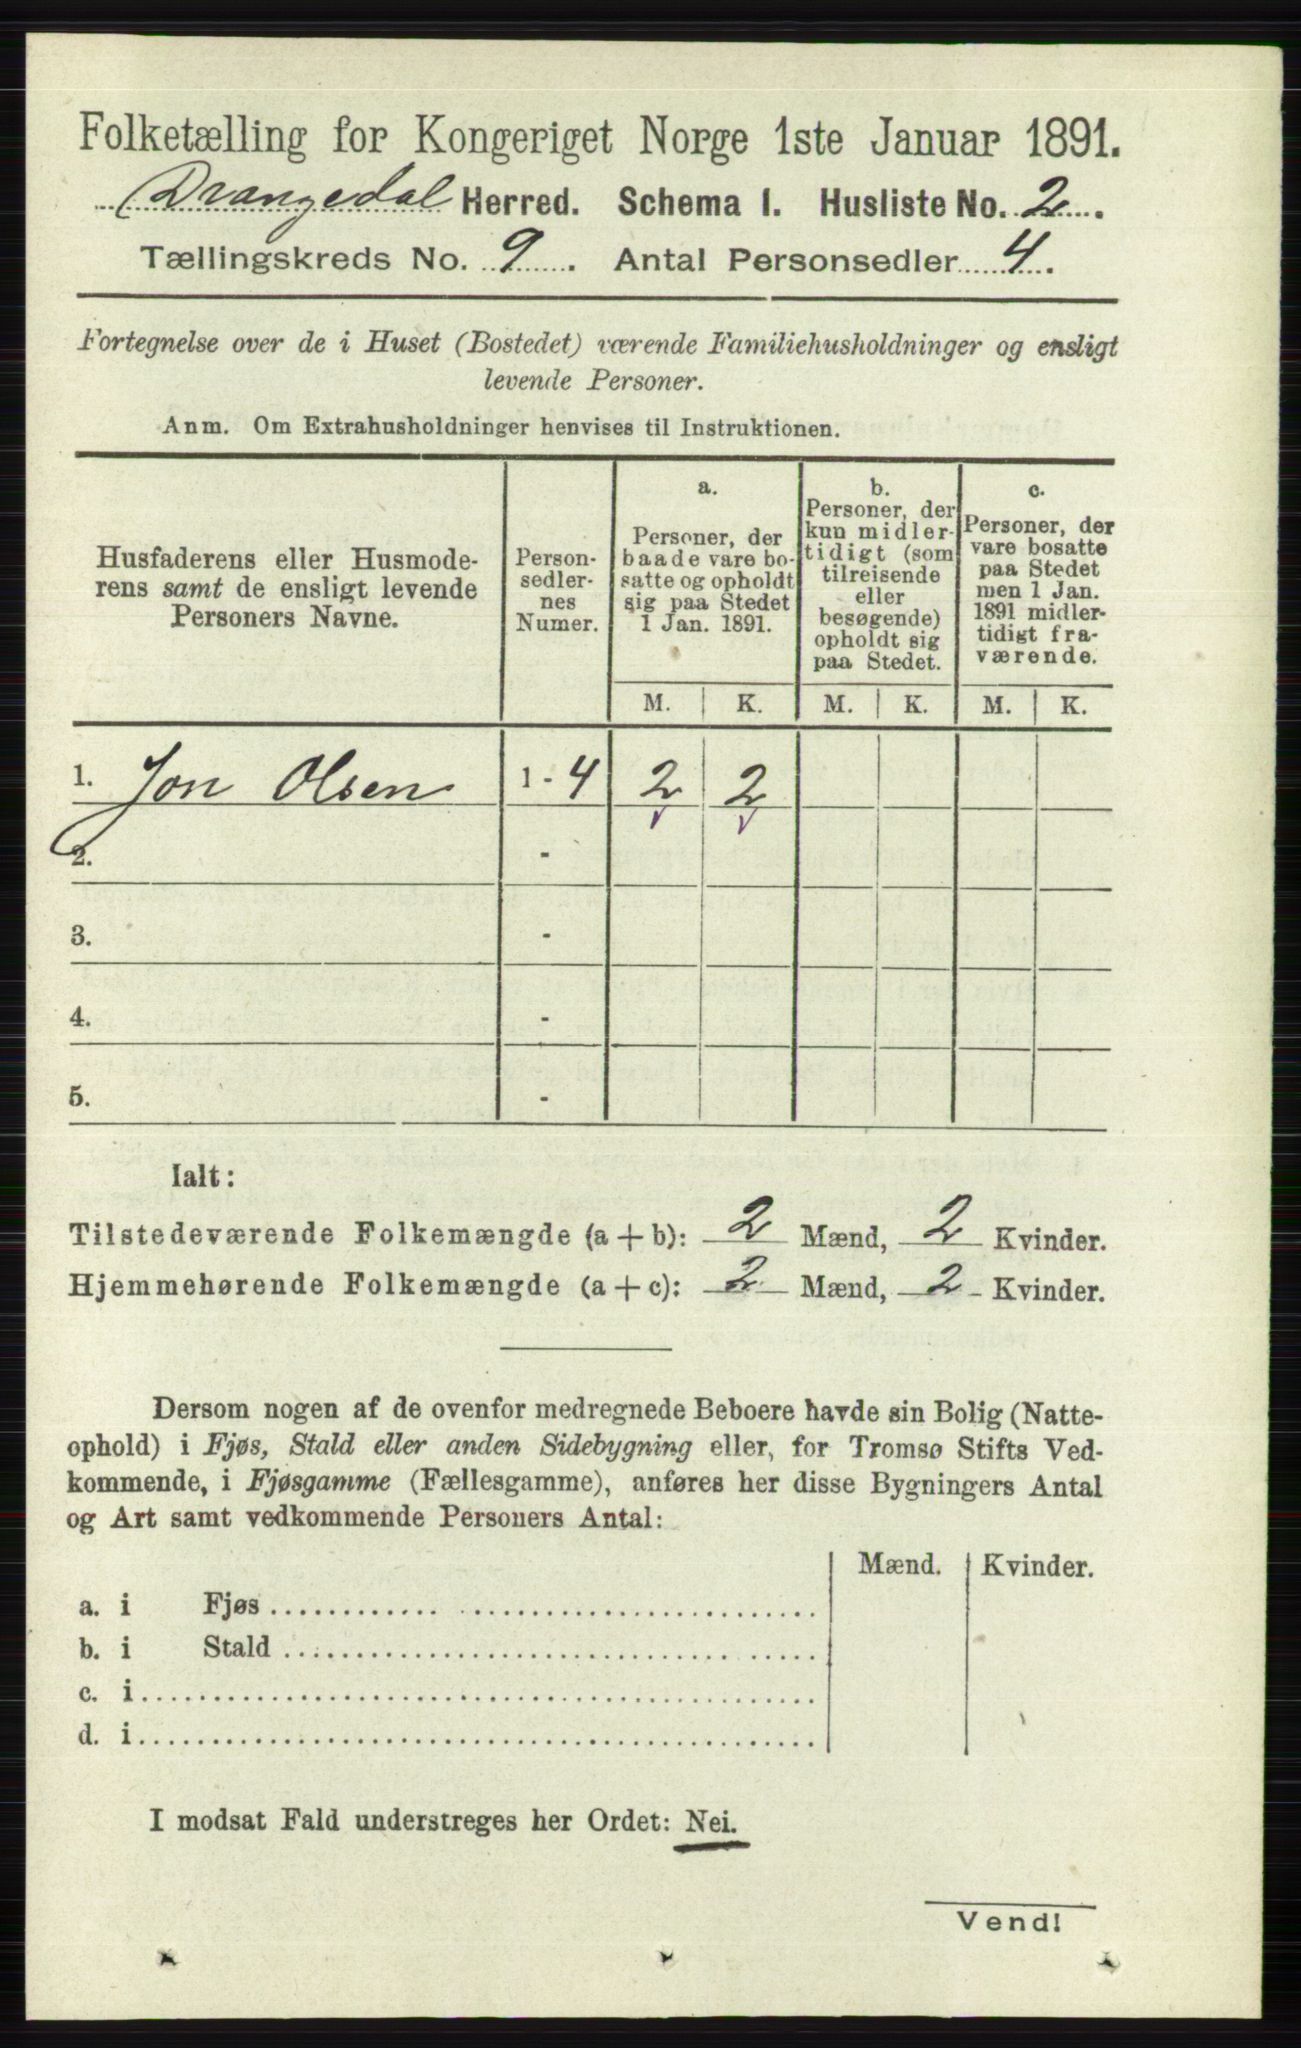 Folketælling for Kongeriget Norge 1ste Januar 1891.
Drangedal Herred. Schema I. Husliste No. 2.
Tællingskreds No. 9. Antal Personsedler 4.
Fortegnelse over de i Huset (Bostedet) værende Familiehusholdninger og ensligt
levende Personer.
Anm. Om Extrahusholdninger henvises til Instruktionen.
Husfaderens eller Husmode-
rens samt de ensligt levende
Personers Navne.
Person-
sedler-
nes
Numer.
a.
Personer, der
baade vare bo-
satte og opholdt
sig paa Stedet
1 Jan. 1891.
b.
Personer, der
kun midler-
tidigt (som
tilreisende
eller
besøgende)
opholdt sig
paa Stedet.
c.
Personer, der
vare bosatte
paa Stedet
men 1 Jan.
1891 midler-
tidigt fra-
værende.
M. K. M. K. M. K.
1. Jon Olsen 1 - 4 2 2
2. -
3. -
4. -
5. -
Ialt:
Tilstedeværende Folkemængde (a + b): 2 Mænd, 2 Kvinder.
Hjemmehørende Folkemængde (a + c): 2 Mænd, 2 Kvinder.
Dersom nogen af de ovenfor medregnede Beboere havde sin Bolig (Natte-
ophold) i Fjøs, Stald eller anden Sidebygning eller, for Tromsø Stifts Ved-
kommende, i Fjøsgamme (Fællesgamme), anføres her disse Bygningers Antal
og Art samt vedkommende Personers Antal:
Mænd. Kvinder.
a. i Fjøs
b. i Stald
c. i
d. i
I modsat Fald understreges her Ordet: Nei.
Vend!